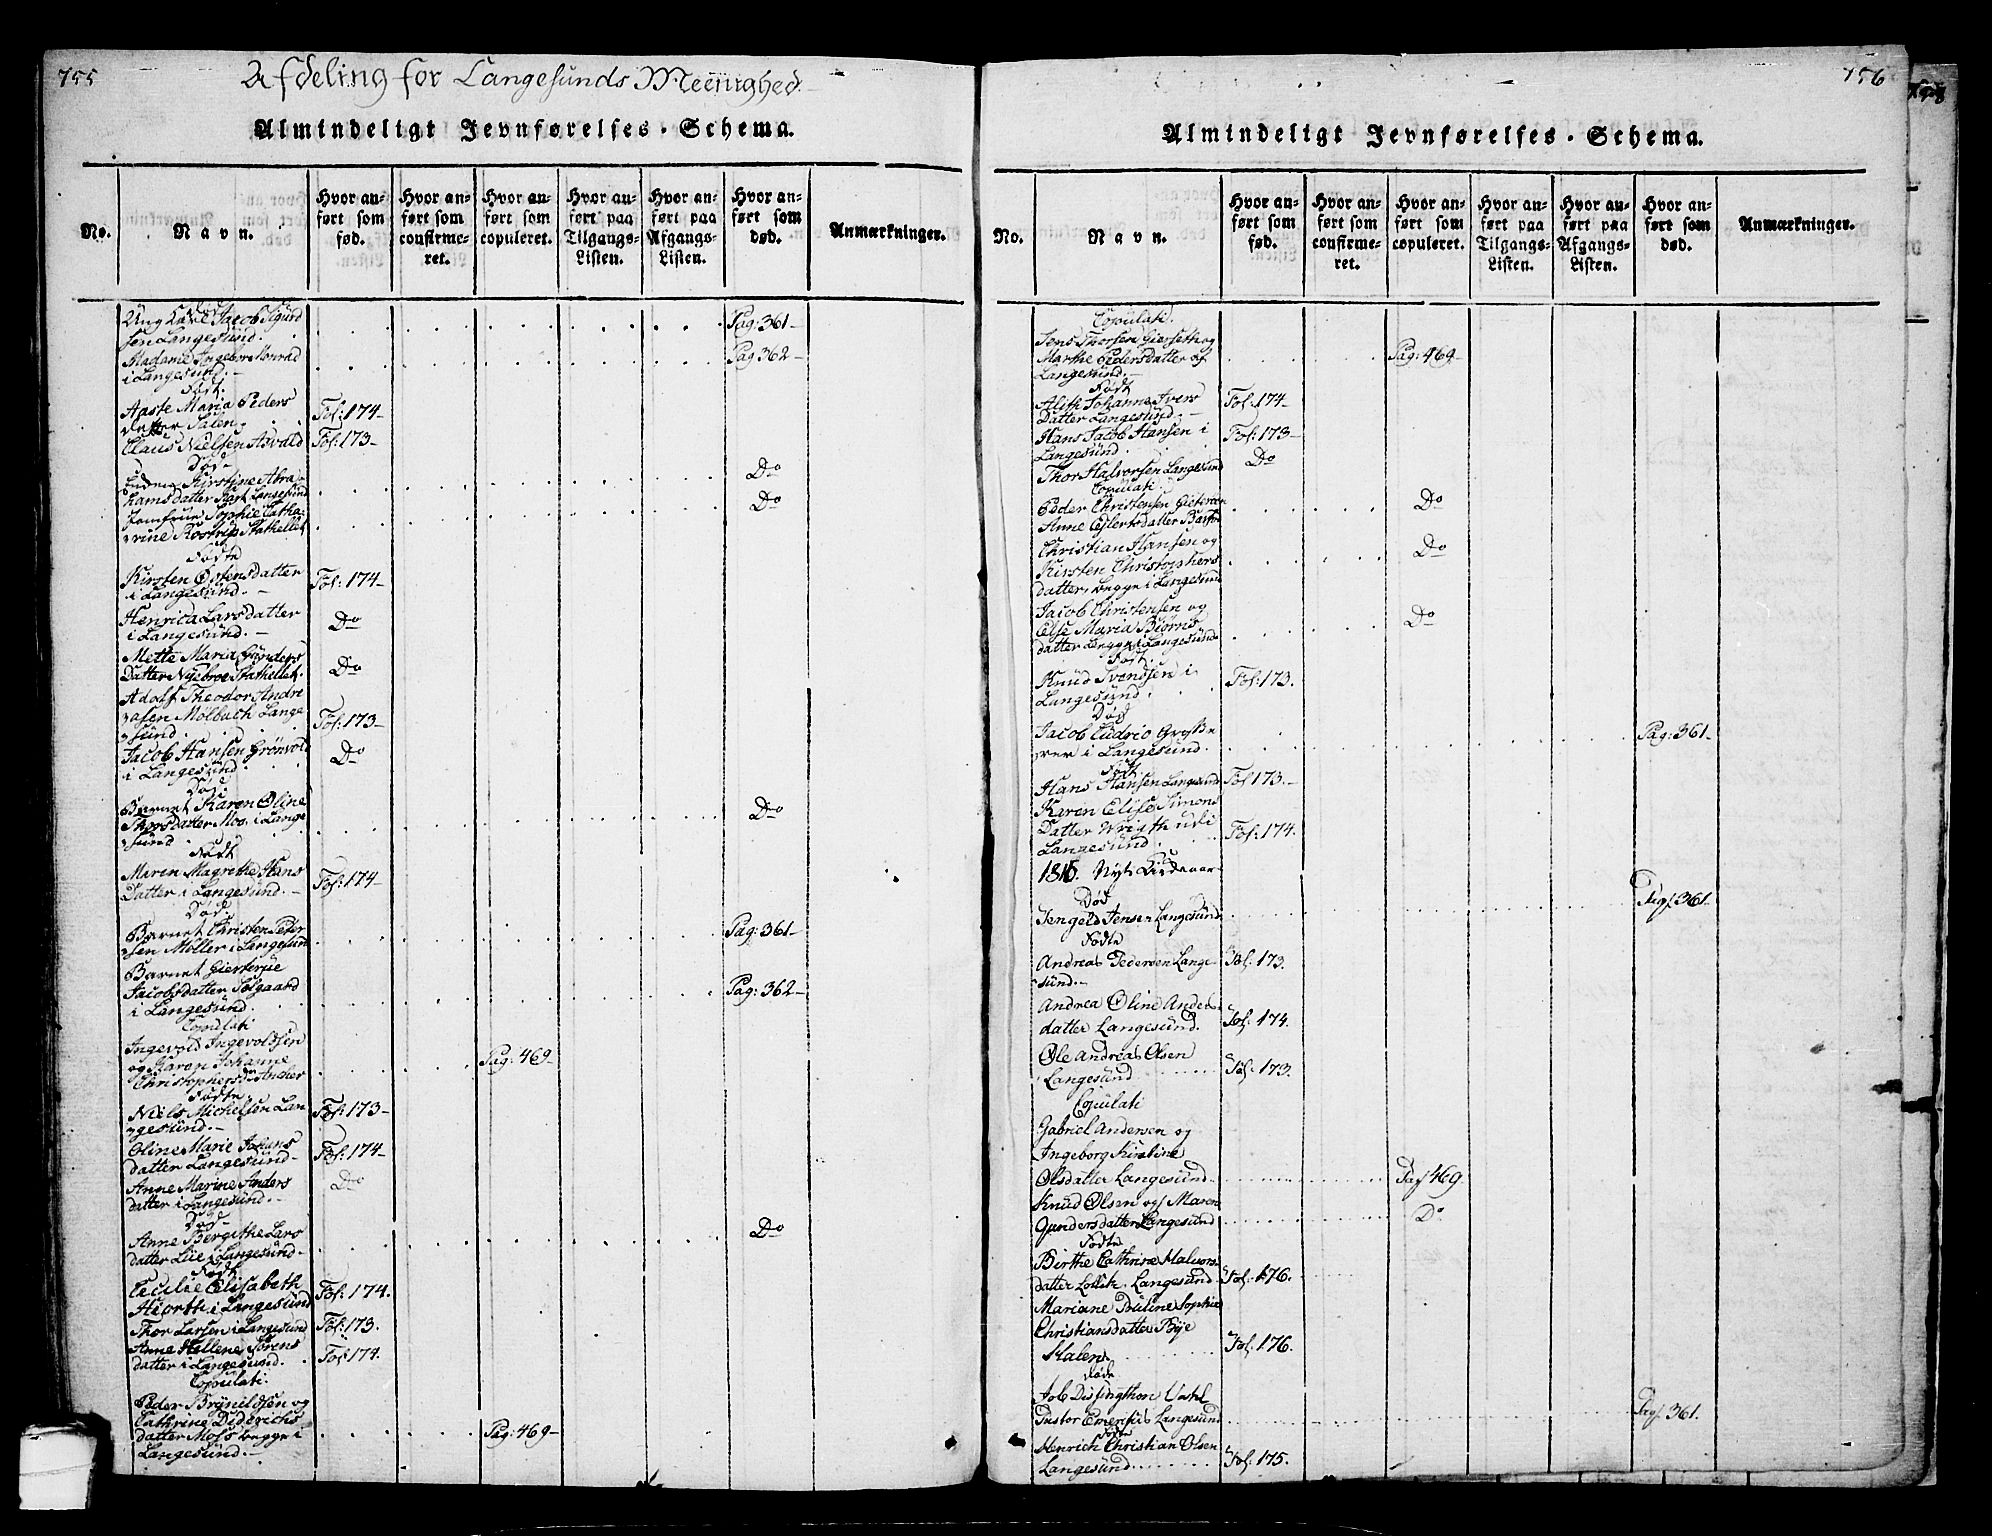 755
Afdeling for Langesunds Meenighed
Almindeligt Jevnførelses-Schema.
No.
Navn.
Hvor anført som fød.
Hvor anført som confirmeret.
Hvor anført som copuleret.
Hvor anført paa Tilgangs-Listen.
Hvor anført paa Afgangs-Listen.
Hvor anført som død.
Anmærkninger.
Ung Karl Jacob Sigurd Pag: 361
sen Langesund.
Madame Ingebor Monrad Pag 362
i Langesund.
Født.
Aaste Maria Peders Fol: 174
datter Salen
Claus Nielsen Asvald Fol: 173
Død
Kirstine Abra Do
hamsdatter Langesund
Jomfrue Sophie Catha Do
rine Stathellet
Fødte
Kirsten Østensdatter Fol: 174
i Langesund.
Henrica Larsdatter Do
i Langesund.
Mette Maria Gunders Do
Datter Nyebroe Stathellet.
Adolf Theodor Andre
asen Mølbach Lange Fol: 173
sund.
Jacob Hansen Grönvold Do
i Langesund
Død
Barnet Karen Oline Do
Thorsdatter Moe i Lange
sund
Født
Maren Magrethe Hans Fol: 174
Datter i Langesund.
Død
Barnet Christen Peder Pag: 361
sen Möller i Langesund
Barnet Giertrue
Jacobsdatter Solgaard Pag: 362
i Langesund.
Copulati
Ingevold Ingevoldsen
og Karen Johanne Pag: 469
Christophersdr Ancher
Fødte
Niels Michelsen Lan Fol: 173
gesund.
Oline Marie Johans Fol: 174
datter Langesund
Anne Marine Anders Do
datter i Langesund.
Død
Anne Bergithe Lars Do
datter Lie i Langesund
Født
Cecilie Elisabeth Fol: 174.
Hiorth i Langesund
Thor Larsen i Langesund Fol: 173.
Anne Hellene Sørens Fol: 174.
datter i Langesund.
Copulati.
Peder Brynildsen og
Cathrine Diderichs
datter Moss begge i Pag: 469
Langesund.
156
Almindeligt Jevnførelses-Schema.
No.
Navn.
Hvor anført som fød.
Hvor anført som confirmeret.
Hvor anført som copuleret.
Hvor anført paa Tilgangs-Listen.
Hvor anført paa Afgangs-Listen.
Hvor anført som død.
Anmærkninger.
Copulati.
Jens Thorsen Gierseth og
Marthe Pedersdatter af Pag: 469
Langesund.
Født
Alith Johanne Ivers Fol: 174
Datter Langesund.
Hans Jacob Hansen i Fol: 173
Langesund
Thor Halvorsen Langesund Do
Copulati.
Peder Christensen Do
Anne
Christian Hansen og Do
Kirsten Christophers
datter, begge i Langesund
Jacob Christensen og Do
Else Maria Biörns
datter begge i Langesund
Født.
Knud Svendsen i Fol: 173.
Langesund.
Død
Jacob Ludrio Pag: 361
i Langesund.
Født
Hans Hansen Langesund Fol 173.
Karen Elise Simons
Datter Wrigth udi Fol: 174.
Langesund
1815. Nyt Kirkeaar
Død
Jengeld Jensen Langesund Pag. 361
Fødte
Andreas Pedersen Lange Fol: 173.
sund.
Andrea Oline Anders
datter Langesund. Fol: 174.
Ole Andreas Olsen
Langesund Fol: 173.
Copulati
Gabriel Andersen og
Ingeborg Kirstine
Olsdatter Langesund. Pag 469.
Knud Olsen og Maren
Gundersdatter Langesund Do
Fødte
Birthe Cathrine Halvors
datter Langesund. Fol: 176.
Mariane Pauline Sophie
Christiansdatter Bye
Salen Fol. 176.
Døde
Job
Pastor Langesund Pag. 361.
Fødte
Henrich Christian Olsen
Langesund Fol: 175.